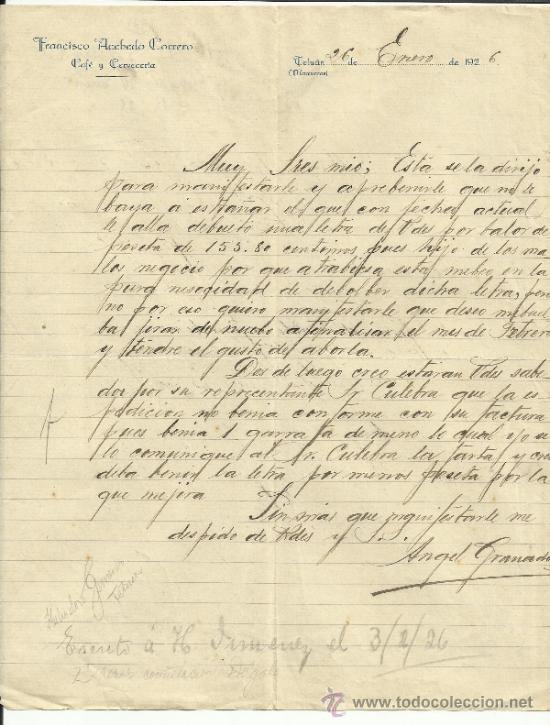 Francisco Acebedo Correro
Café y Cervecería
Tetuán 26 de Enero de 1926.
(Marruecos)
Muy Sres mio; Esta se la dirijo
para manifestarle y a preberirle que no le
baya a estrañar el que con fecha actual
le alla debuelto una letra de Vdes por balor de
peseta de 153.80 centimos pues hijo de los ma
los negocio por que atrabiesa esta me beo en la
pura nesecidad de debolber dicha letra, pero
no por eso quiero manifestarle que deseo me buel
ba jirar de nuebo a finalisar el mes de Febrero
y tendre el gusto de aborla.
Des de luego creo estaran Vdes sabe
dor por su representante Sr Culebra que la es
pedicion no benia conforme con su factura
pues benia 1 garrafa de meno lo cual yo se
lo comunique al Sr. Culebra la farta y cre
deba benir la letra por menos peseta por la
que me jira
Sin mas que manifestarle me
despido de Vdes y S. S.
Angel Granado
Escrito á H Jimenez el 3/2/26
www.todocoleccion.net